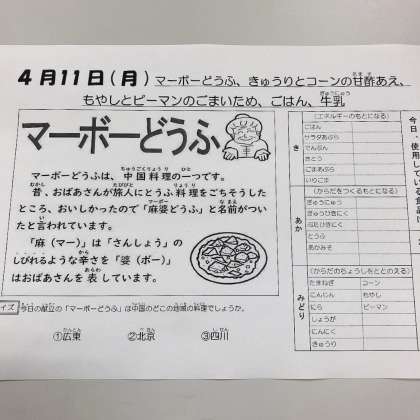 4月11日(月) マーボーどうふ、きゅうりとコーンの甘酢あえ、
もやしとピーマンのごまいため、ごはん、牛乳
マーボーどうふ
マーボーどうふは、中国料理の一つです。
昔、おばあさんが旅人にとうふ料理をごちそうした
ところ、おいしかったので「麻婆どうふ」と名前がつい
たと言われています。
「麻（マー）」は「さんしょう」の
しびれるような辛さを「婆（ボー）」
はおばあさんを表しています。
イズ
今日の献立の「マーボーどうふ」は中国のどこの地域の料理でしょうか。
①広東 ②北京 ③四川
今日、使用している食品は
き
(エネルギーのもとになる)
ごはん
サラダあぶら
でんぷん
さとう
ごまあぶら
いりごま
あか
(からだをつくるもとになる)
ぎゅうにゅう
ぶたひきにく
とうふ
あかみそ
みどり
(からだのちょうしをととのえる)
たまねぎ コーン
にんじん もやし
にら ピーマン
しょうが
にんにく
きゅうり